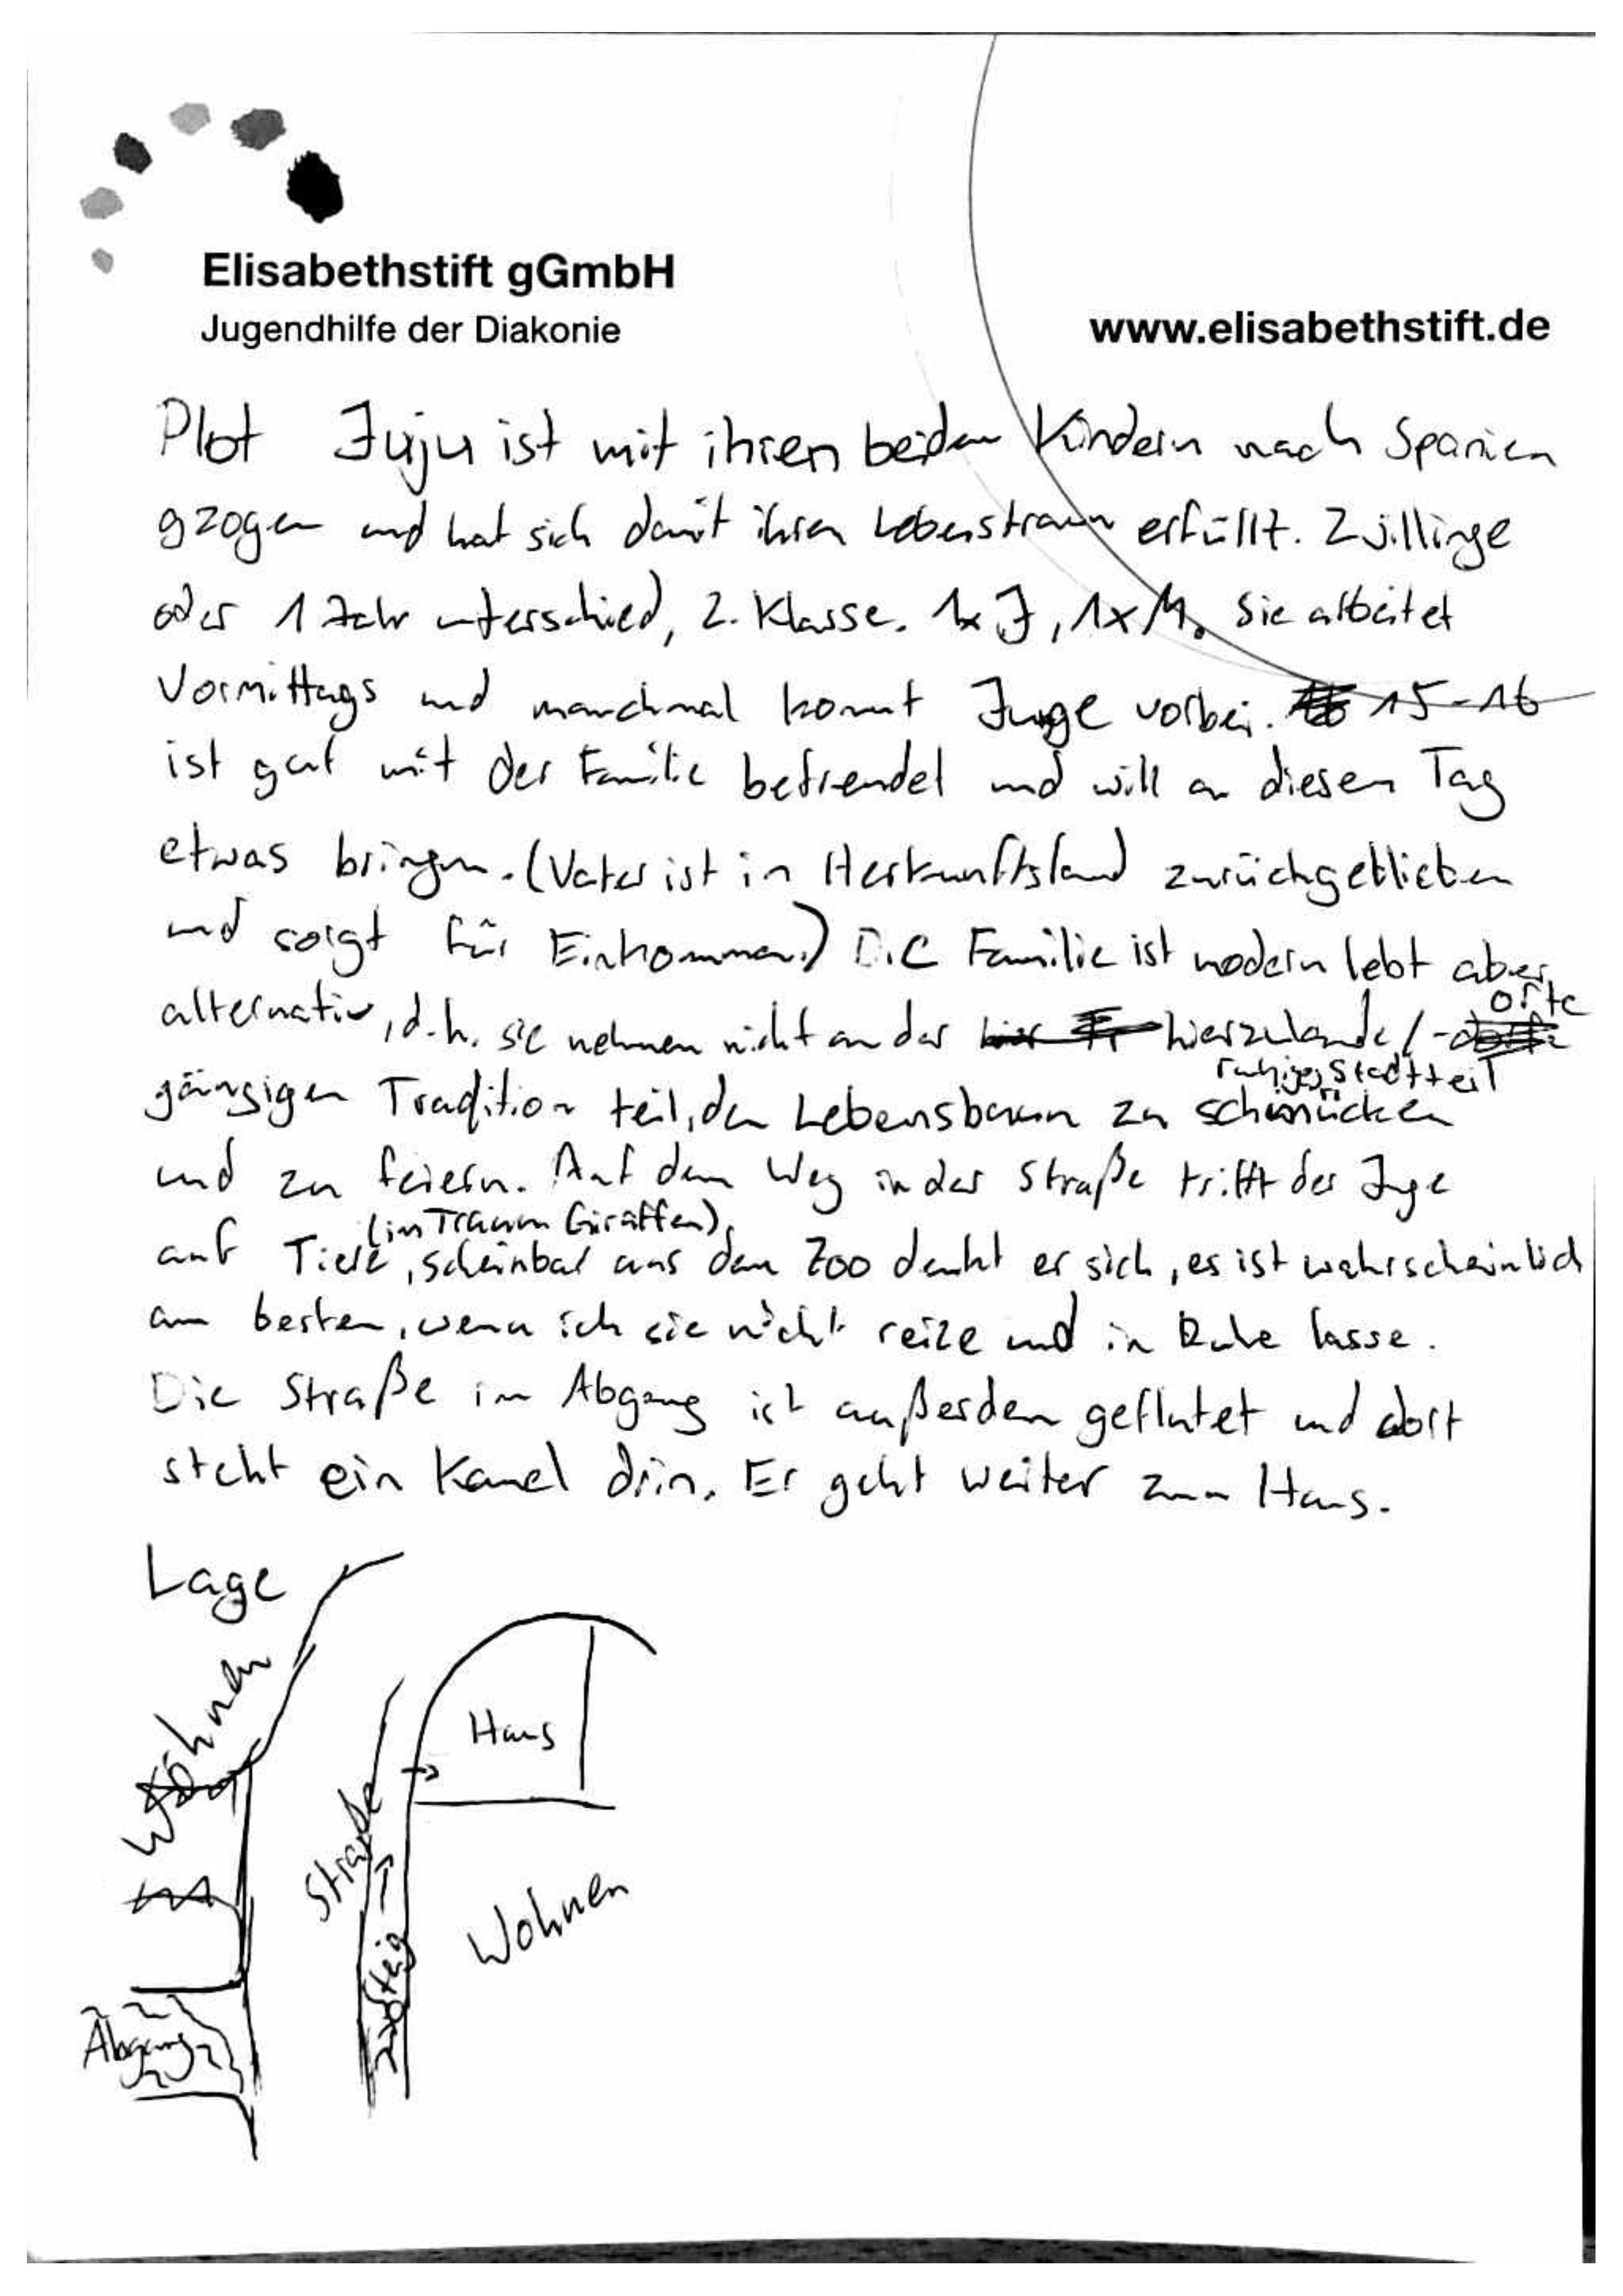 Elisabethstift gGmbH
Jugendhilfe der Diakonie
www.elisabethstift.de
Plot Juju ist mit ihren beiden Kindern nach Spanien
gzogen und hat sich damit ihren Lebenstraum erfüllt. Zwillinge
oder 1 Jahr unterschied, 2. Klasse. 1x J, 1x M. Sie arbeitet
Vormittags und manchmal kommt Junge vorbei. 15-16
ist gut mit der Familie befreundet und will an diesem Tag
etwas bringen. (Vater ist in Herkunftsland zurückgeblieben
und sorgt für Einkommen.) Die Familie ist modern lebt aber
alternativ, d.h. sie nehmen nicht an der hierzulande/-orte
ruhiger Stadtteil
gängigen Tradition teil, den Lebensbaum zu schmücken
und zu feiern. Auf dem Weg in der Straße trifft der Junge
(im Traum Giraffen),
auf Tiere, scheinbar aus dem Zoo denkt er sich, es ist wahrscheinlich
am besten, wenn ich sie nicht reize und in Ruhe lasse.
Die Straße im Abgang ist außerdem geflutet und dort
steht ein Kamel drin. Er geht weiter zum Haus.
Lage
Wohnen
Haus
Straße
Wohnen
Abgang